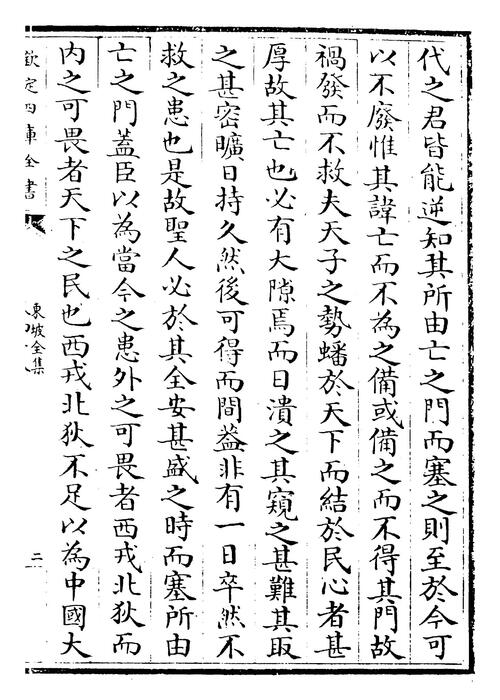 代之君皆能逆知其所由亡之門而塞之則至於今可
以不廢惟其諱亡而不為之備或備之而不得其門故
禍發而不救夫天子之勢蟠於天下而結於民心者甚
厚故其亡也必有大隙焉而日潰之其窺之甚難其取
之甚密曠日持久然後可得而間葢非有一日卒然不
救之患也是故聖人必於其全安甚盛之時而塞所由
亡之門蓋臣以為當今之患外之可畏者西戎北狄而
内之可畏者天下之民也西戎北狄不足以為中國大
欽定四庫全書
東坡全集
二